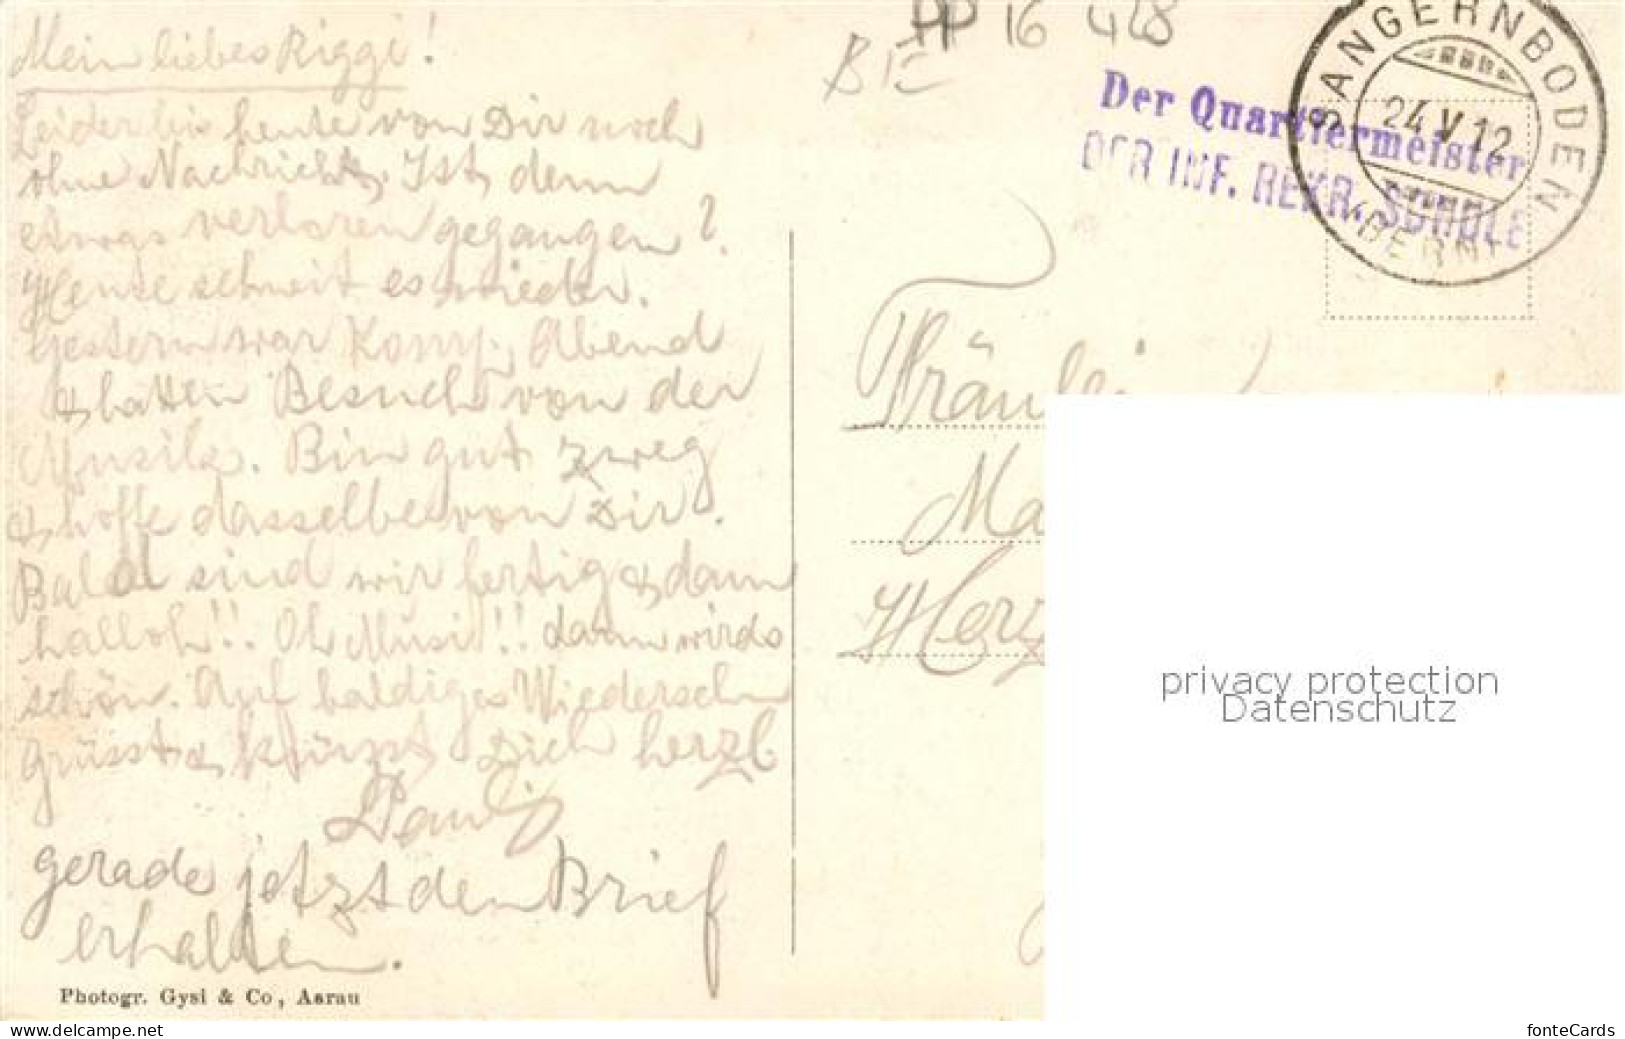 Mein liebes Riggi!
Leider bis heute von Dir noch
ohne Nachricht. Ist denn
etwas verloren gegangen?
Heute schneit es wieder.
Gestern war Komp. Abend
& hatten Besuch von der
Musik. Bin gut zweg
& hoffe dasselbe von Dir.
Bald sind wir fertig & dann
halloh!! Oh Musi!! dann wirds
schön. Auf baldiges Wiedersehn
grüsst & küsst Dich herzl.
gerade jetzt den Brief
erhalten.
Photogr. Gysi & Co, Aarau
PP 16 428
Der Quartiermeister
DER INF. REKR. SCHULE
SANGERNBODEN
24 V 12
(BERN)
Fräulei
Ma
Herz
privacy protection
Datenschutz
www.delcampe.net
fonteCards